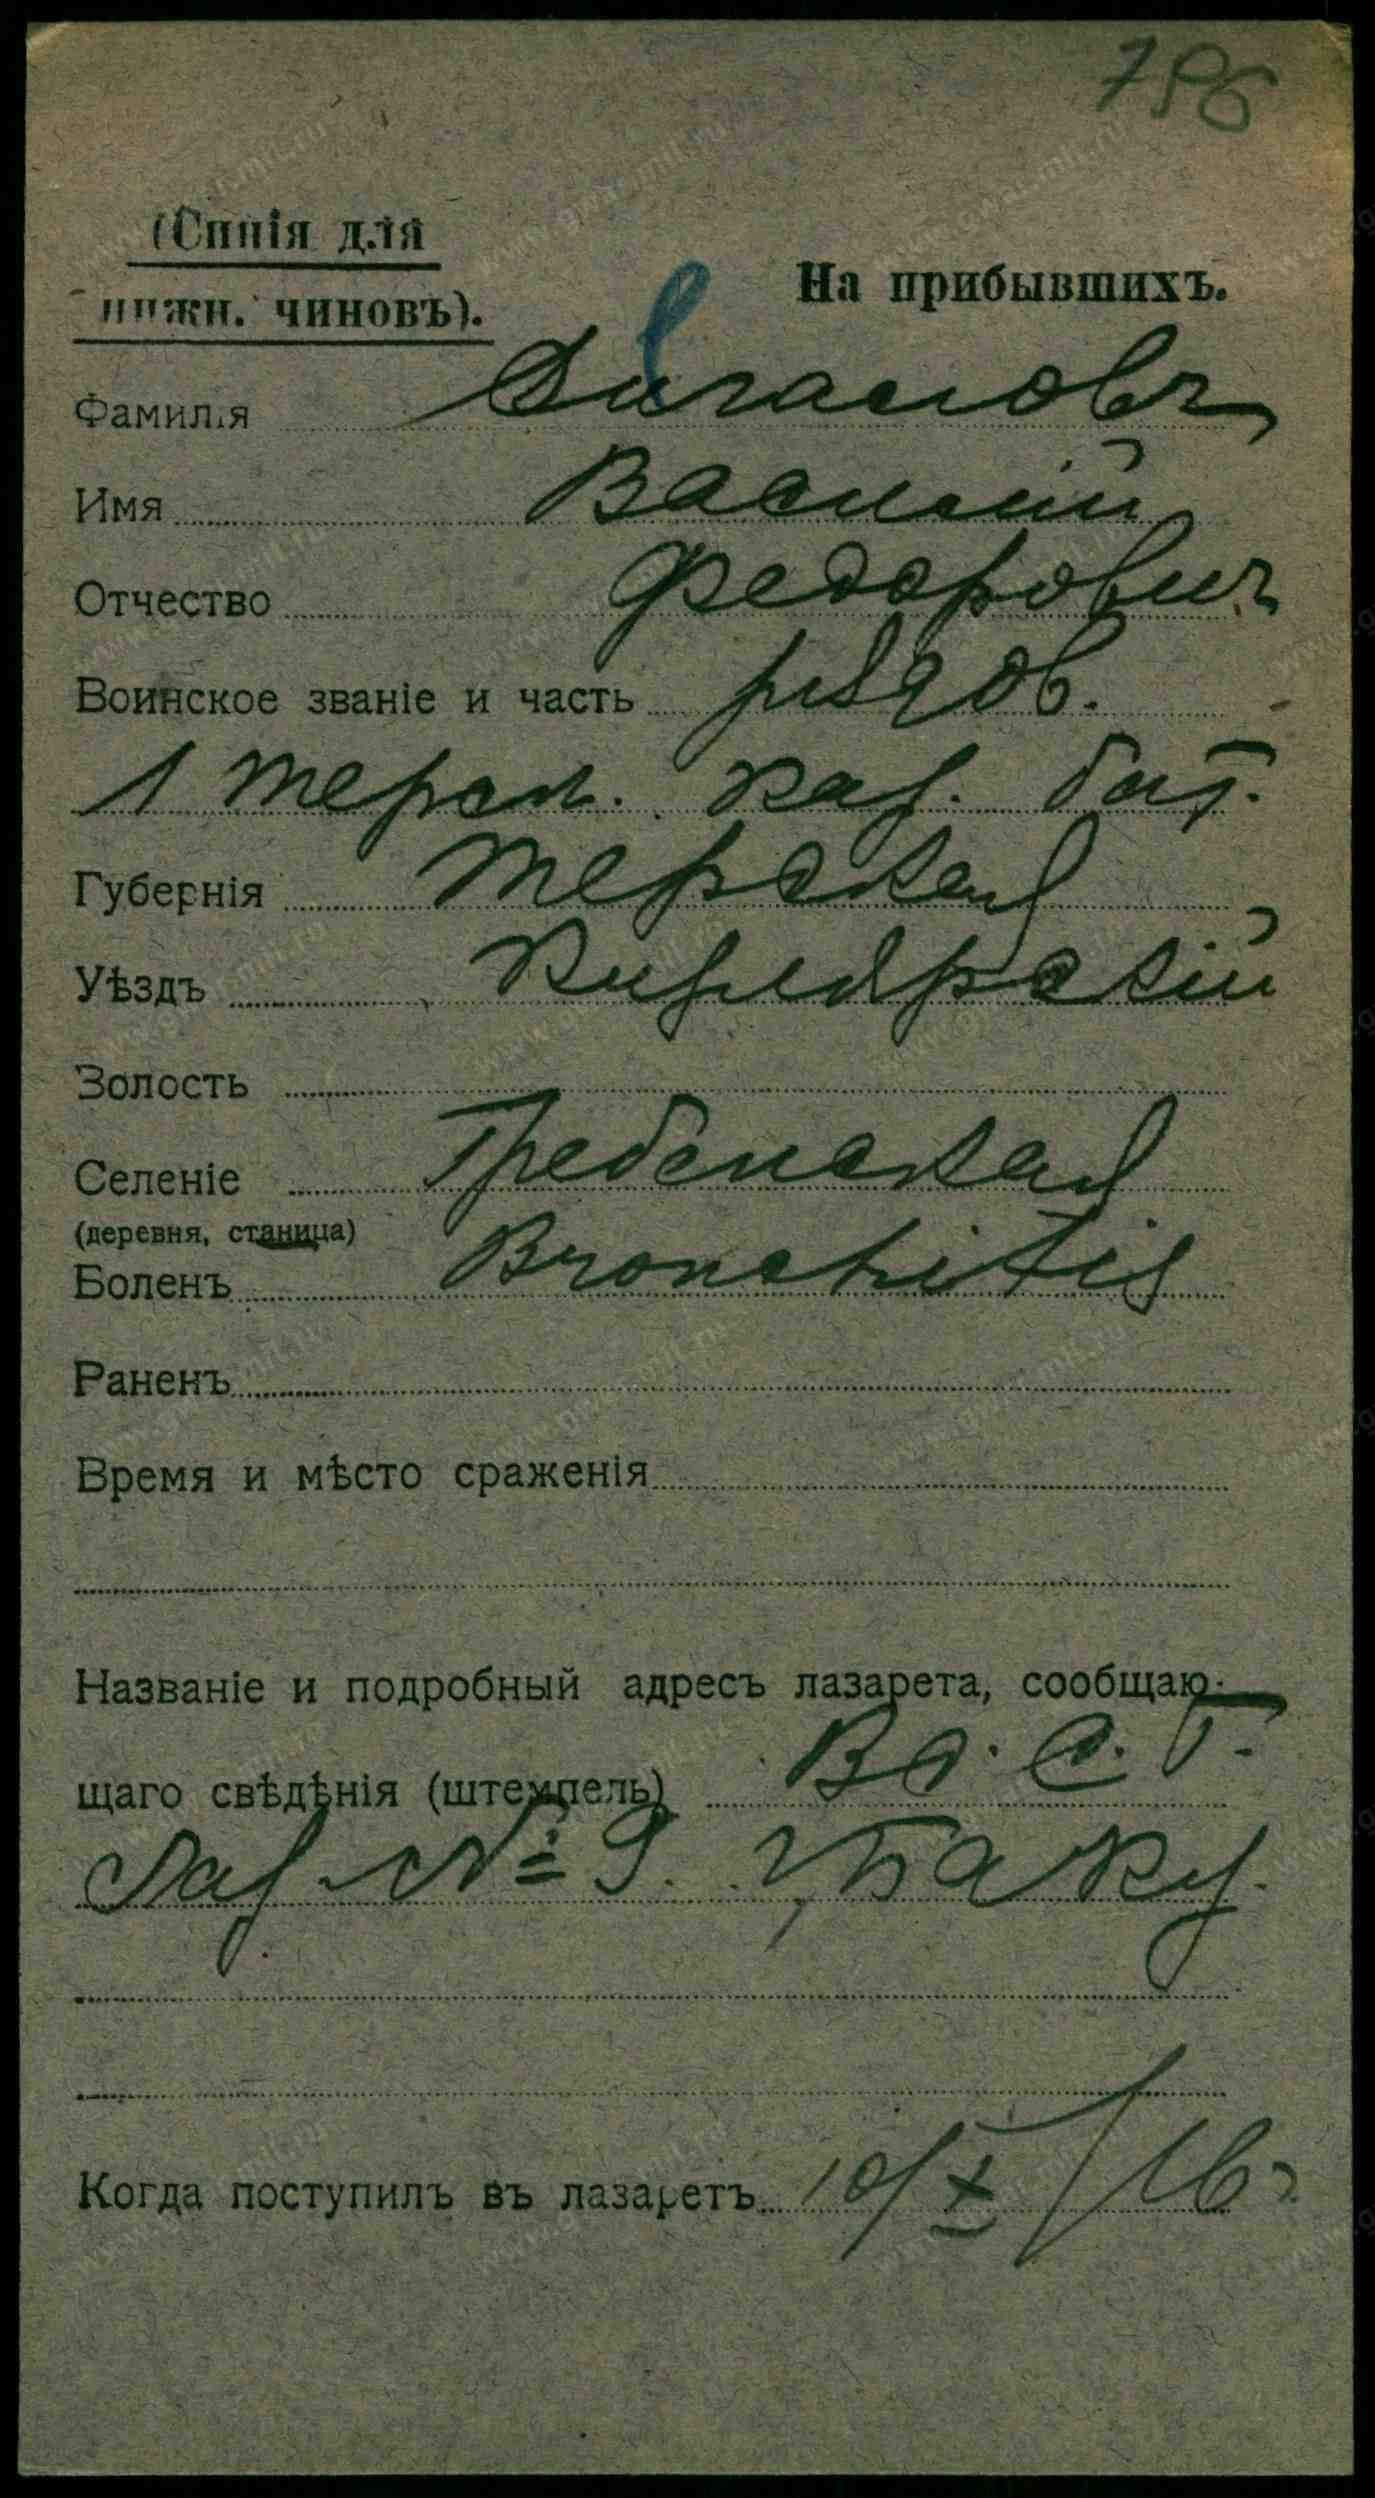 (Синія для
нижн. чиновъ).
На прибывшихъ.
Фамилія
Имя Василий
Отчество Федорович
Воинское званіе и часть рядов.
1 Терск. каз. бат.
Губернія Терская
Уѣздъ Кизлярскій
Волость
Селеніе Гребенская
(деревня, станица)
Боленъ Bronchitis
Раненъ
Время и мѣсто сраженія
Названіе и подробный адресъ лазарета, сообщаю-
щаго свѣдѣнія (штемпель) В. С. Г.
Лаз. № 9. г. Баку.
Когда поступилъ въ лазаретъ 10/X/16 г